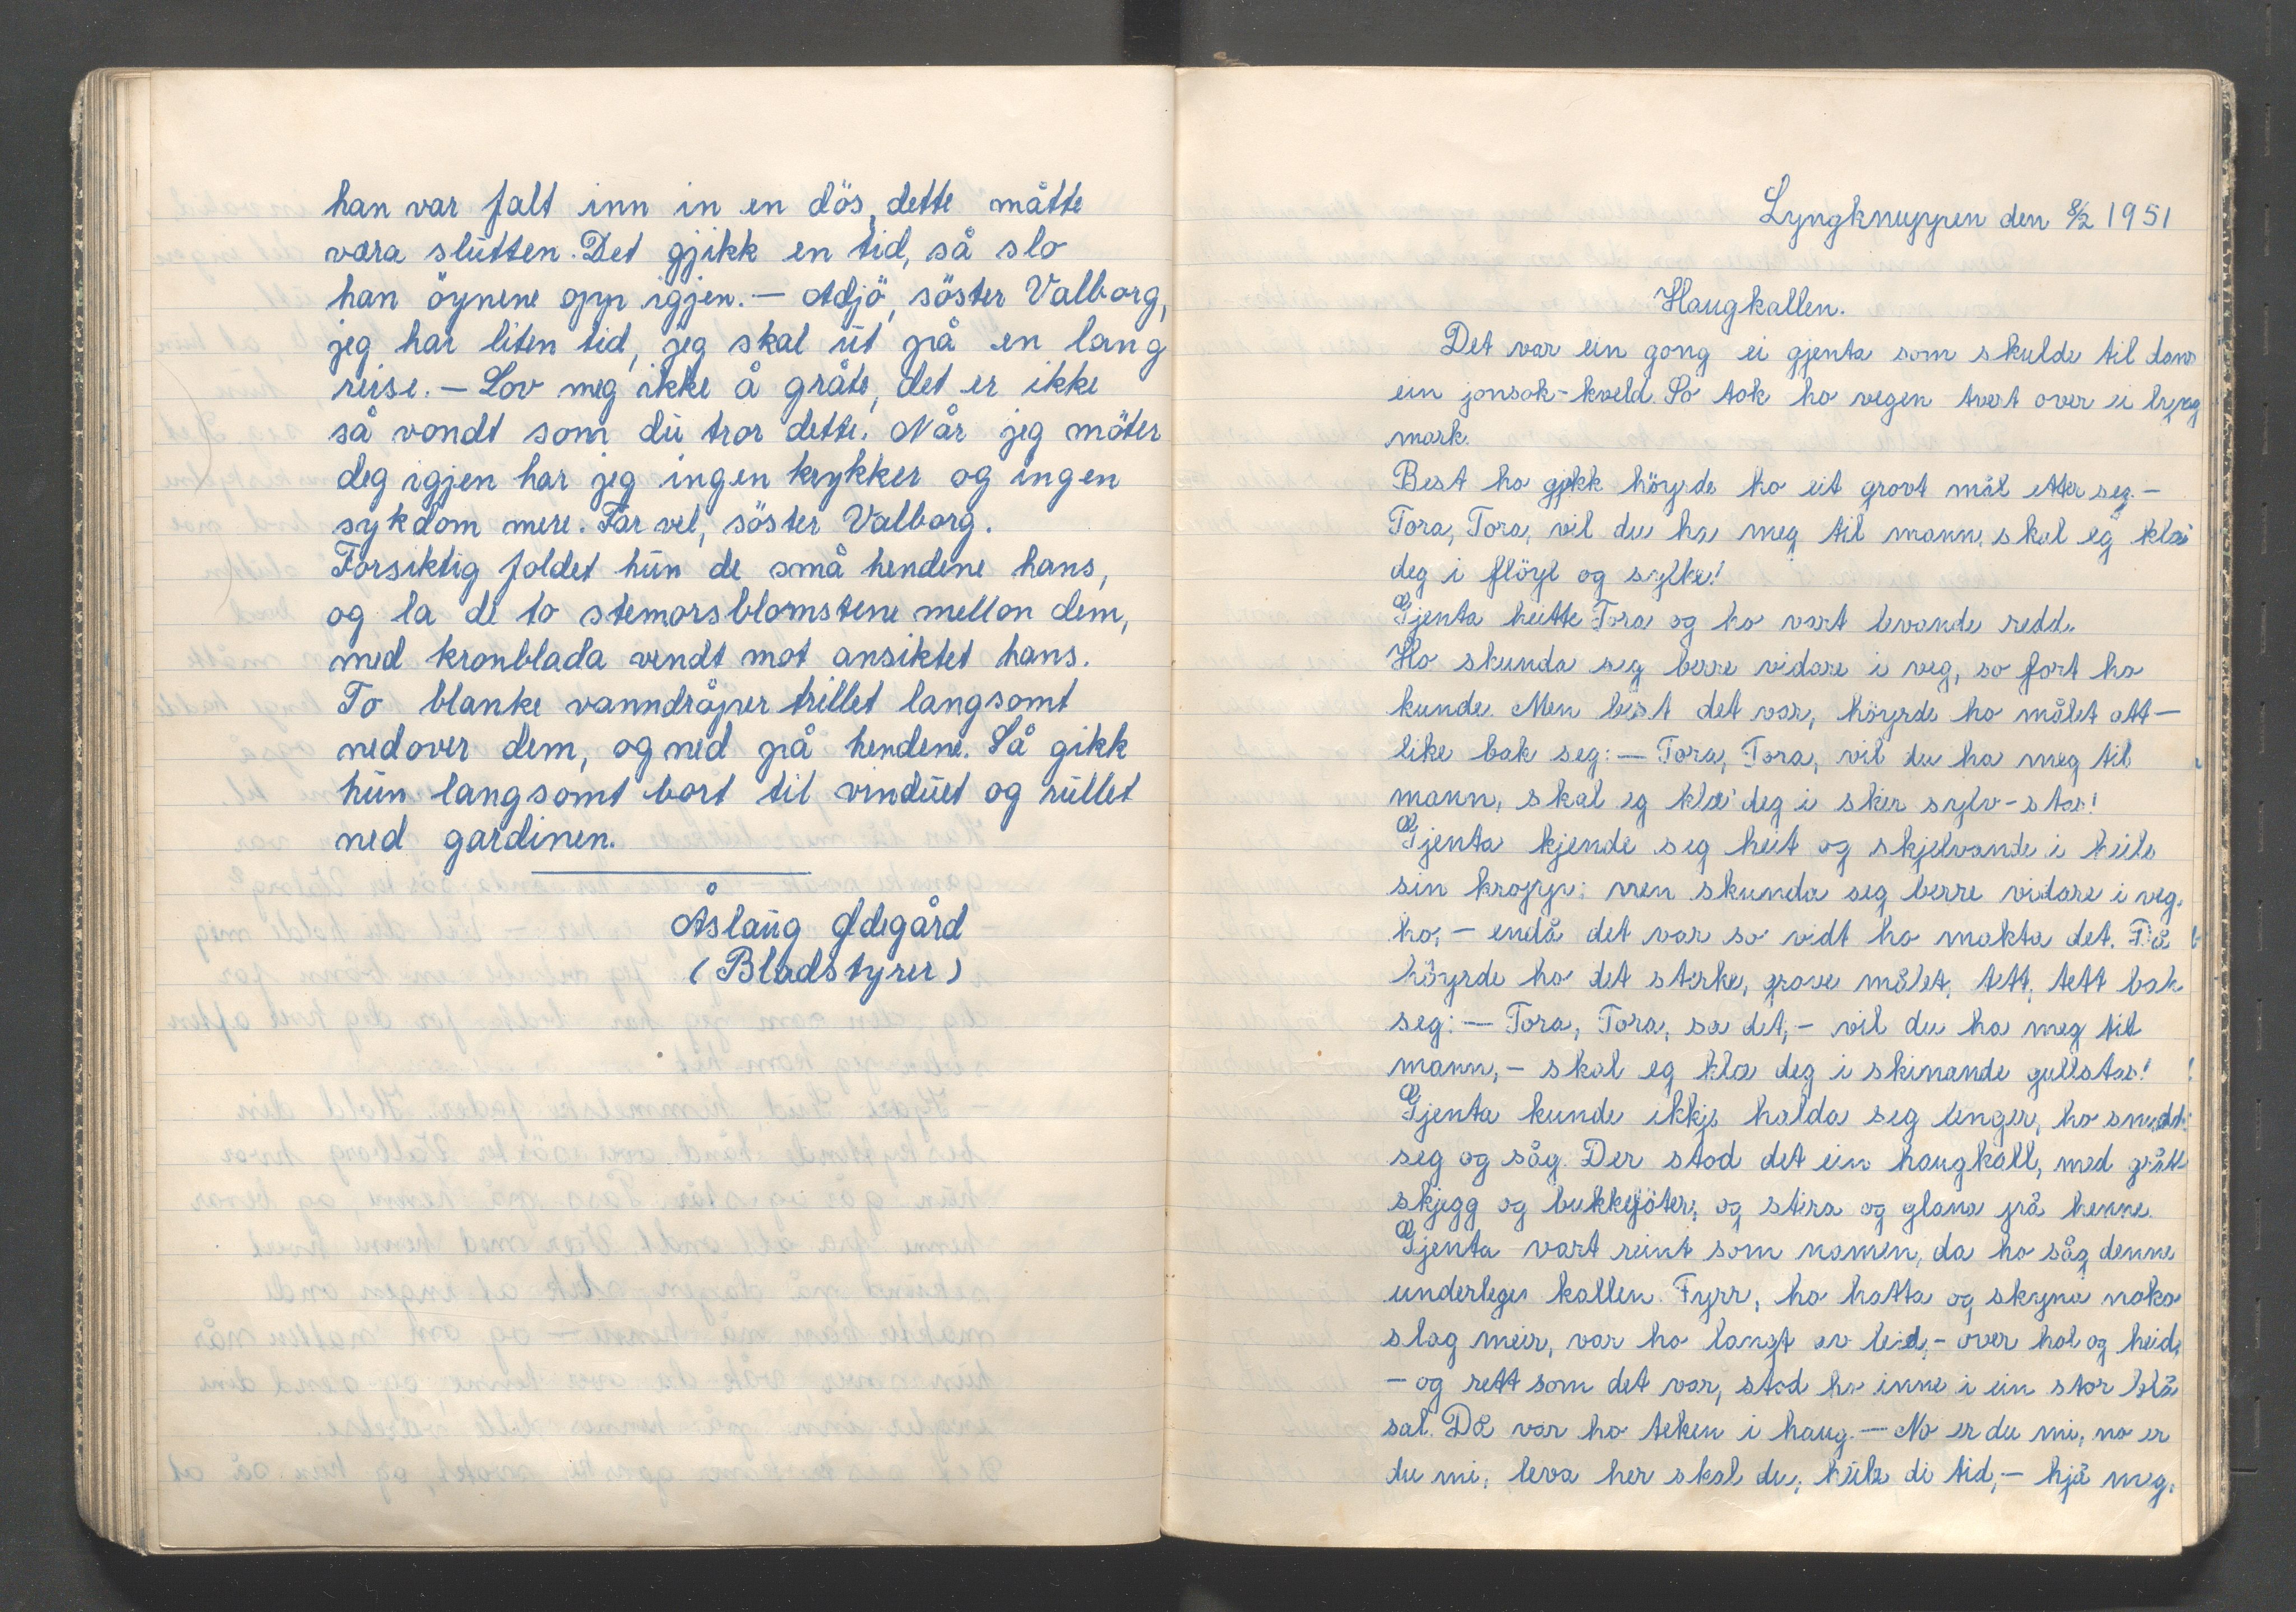 han var falt inn in en dös, dette måtte
være slutten. Det gjikk en tid, så slo
han öynene opp igjen. — Adjö, söster Valborg,
jeg har liten tid, jeg skal ut på en lang
reise. — Lov meg ikke å gråte, det er ikke
så vondt som du tror dette. Når jeg möter
deg igjen har jeg ingen krykker og ingen
sykdom mere. Far vel, söster Valborg.
Forsiktig foldet hun de små hendene hans,
og la de to stemorsblomstene mellon dem,
med kronblada vendt mot ansiktet hans.
To blanke vanndråper trillet langsomt
nedover dem, og ned på hendene. Så gikk
hun langsomt bort til vinduet og rullet
ned gardinen.
Åslaug Ødegård
(Bladstyrer)
Lyngknuppen den 8/2 1951
Haugkallen.
Det var ein gong ei gjenta som skulde til dans
ein jonsok-kveld. So tok ho vegen tvert over ei lyng
mark.
Best ho gjekk höyrde ho eit grovt mål etter seg. —
Tora, Tora, vil du ha meg til mann, skal eg klæ
deg i flöyel og sylke!
Gjenta heitte Tora og ho vart levande redd.
Ho skunda seg berre vidare i veg, so fort ho
kunde. Men best det var, höyrde ho målet att —
like bak seg: — Tora, Tora, vil du ha meg til
mann, skal eg klæ deg i skir sylv-stas!
Gjenta kjende seg heit og skjelvande i heile
sin kropp; men skunda seg berre vidare i veg,
ho, — endå det var so vidt ho makta det. Då
höyrde ho det sterke, grove målet, tett, tett bak
seg: — Tora, Tora, sa det, — vil du ha meg til
mann, — skal eg klæ deg i skinande gullstas!
Gjenta kunde ikkje halda seg lenger, ho snudde
seg og såg. Der stod det ein haugkall, med grått
skjegg og bukkeföter, og stira og glana på henne.
Gjenta vart reint som namen, da ho såg denne
underlege kallen. Fyrr, ho hatta og skyna noko
slag meir, var ho langt av leid, — over hol og heid,
— og rett som det var, stod ho inne i ein stor blå
sal. Då var ho teken i haug. — No er du mi, no er
du mi, leva her skal du, heile di tid, — hjå meg,